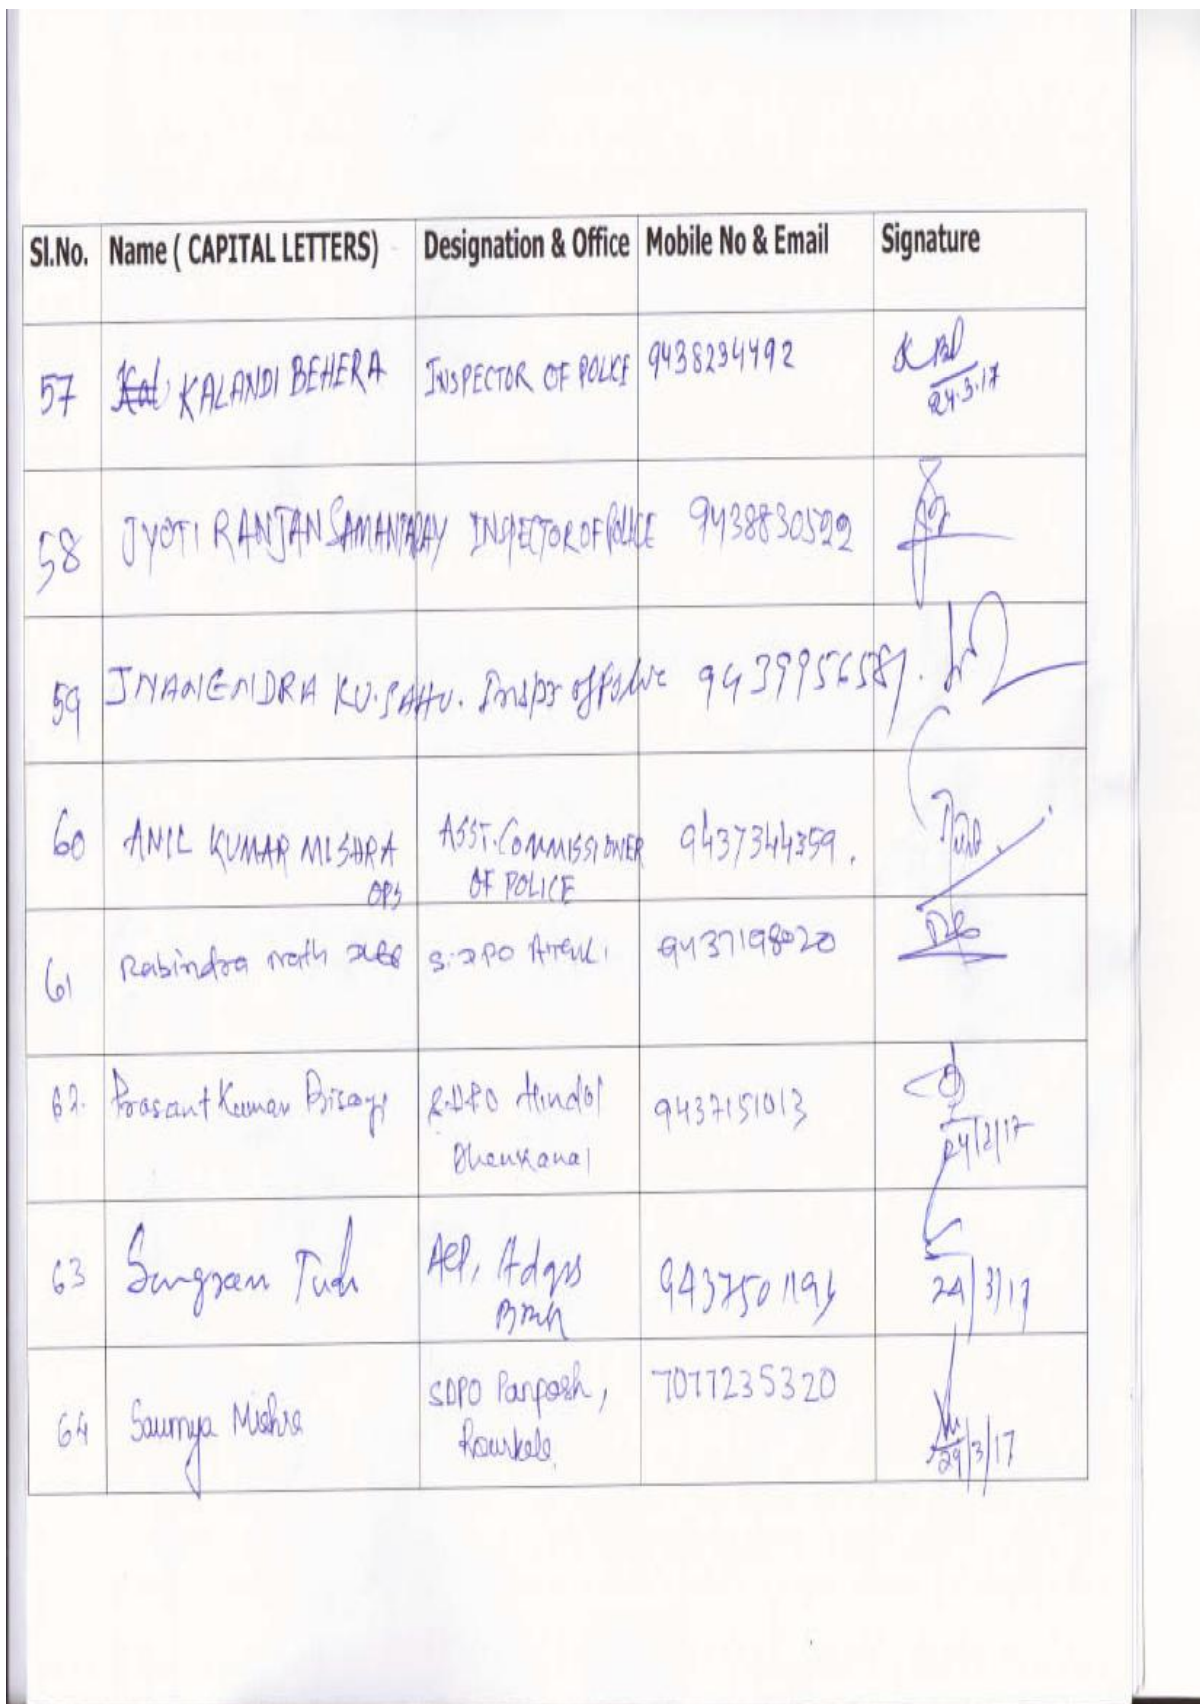 Sl.No. Name ( CAPITAL LETTERS) Designation & Office Mobile No & Email Signature
57 KALANDI BEHERA INSPECTOR OF POLICE 9438234492
24.3.17
58 JYOTI RANJAN SAMANTARAY INSPECTOR OF POLICE 9438830522
59 JNANENDRA KU. SAHU. Inspr of Police 9439956587.
60 ANIL KUMAR MISHRA ASST. COMMISSIONER 9437344359.
OPS OF POLICE
61 Rabindra nath 9437198020
62. Prasant Kumar Bisoyi SDPO Hindol 9437151013
Dhenkanal 24/3/17
63 Sangram ACP, Hdqrs
24/3/17
64 Saumya Mishra SDPO Panposh, 7077235320
Rourkela /3/17